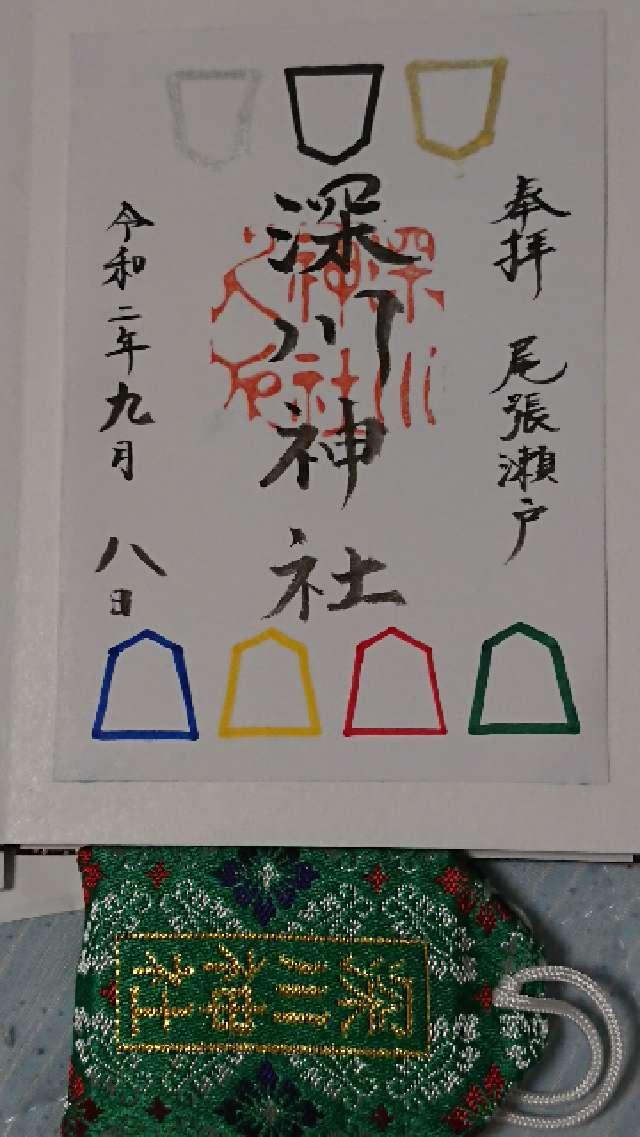 奉拝 尾張瀬戸
深川神社
令和二年九月 八日
深川神社
深川神社